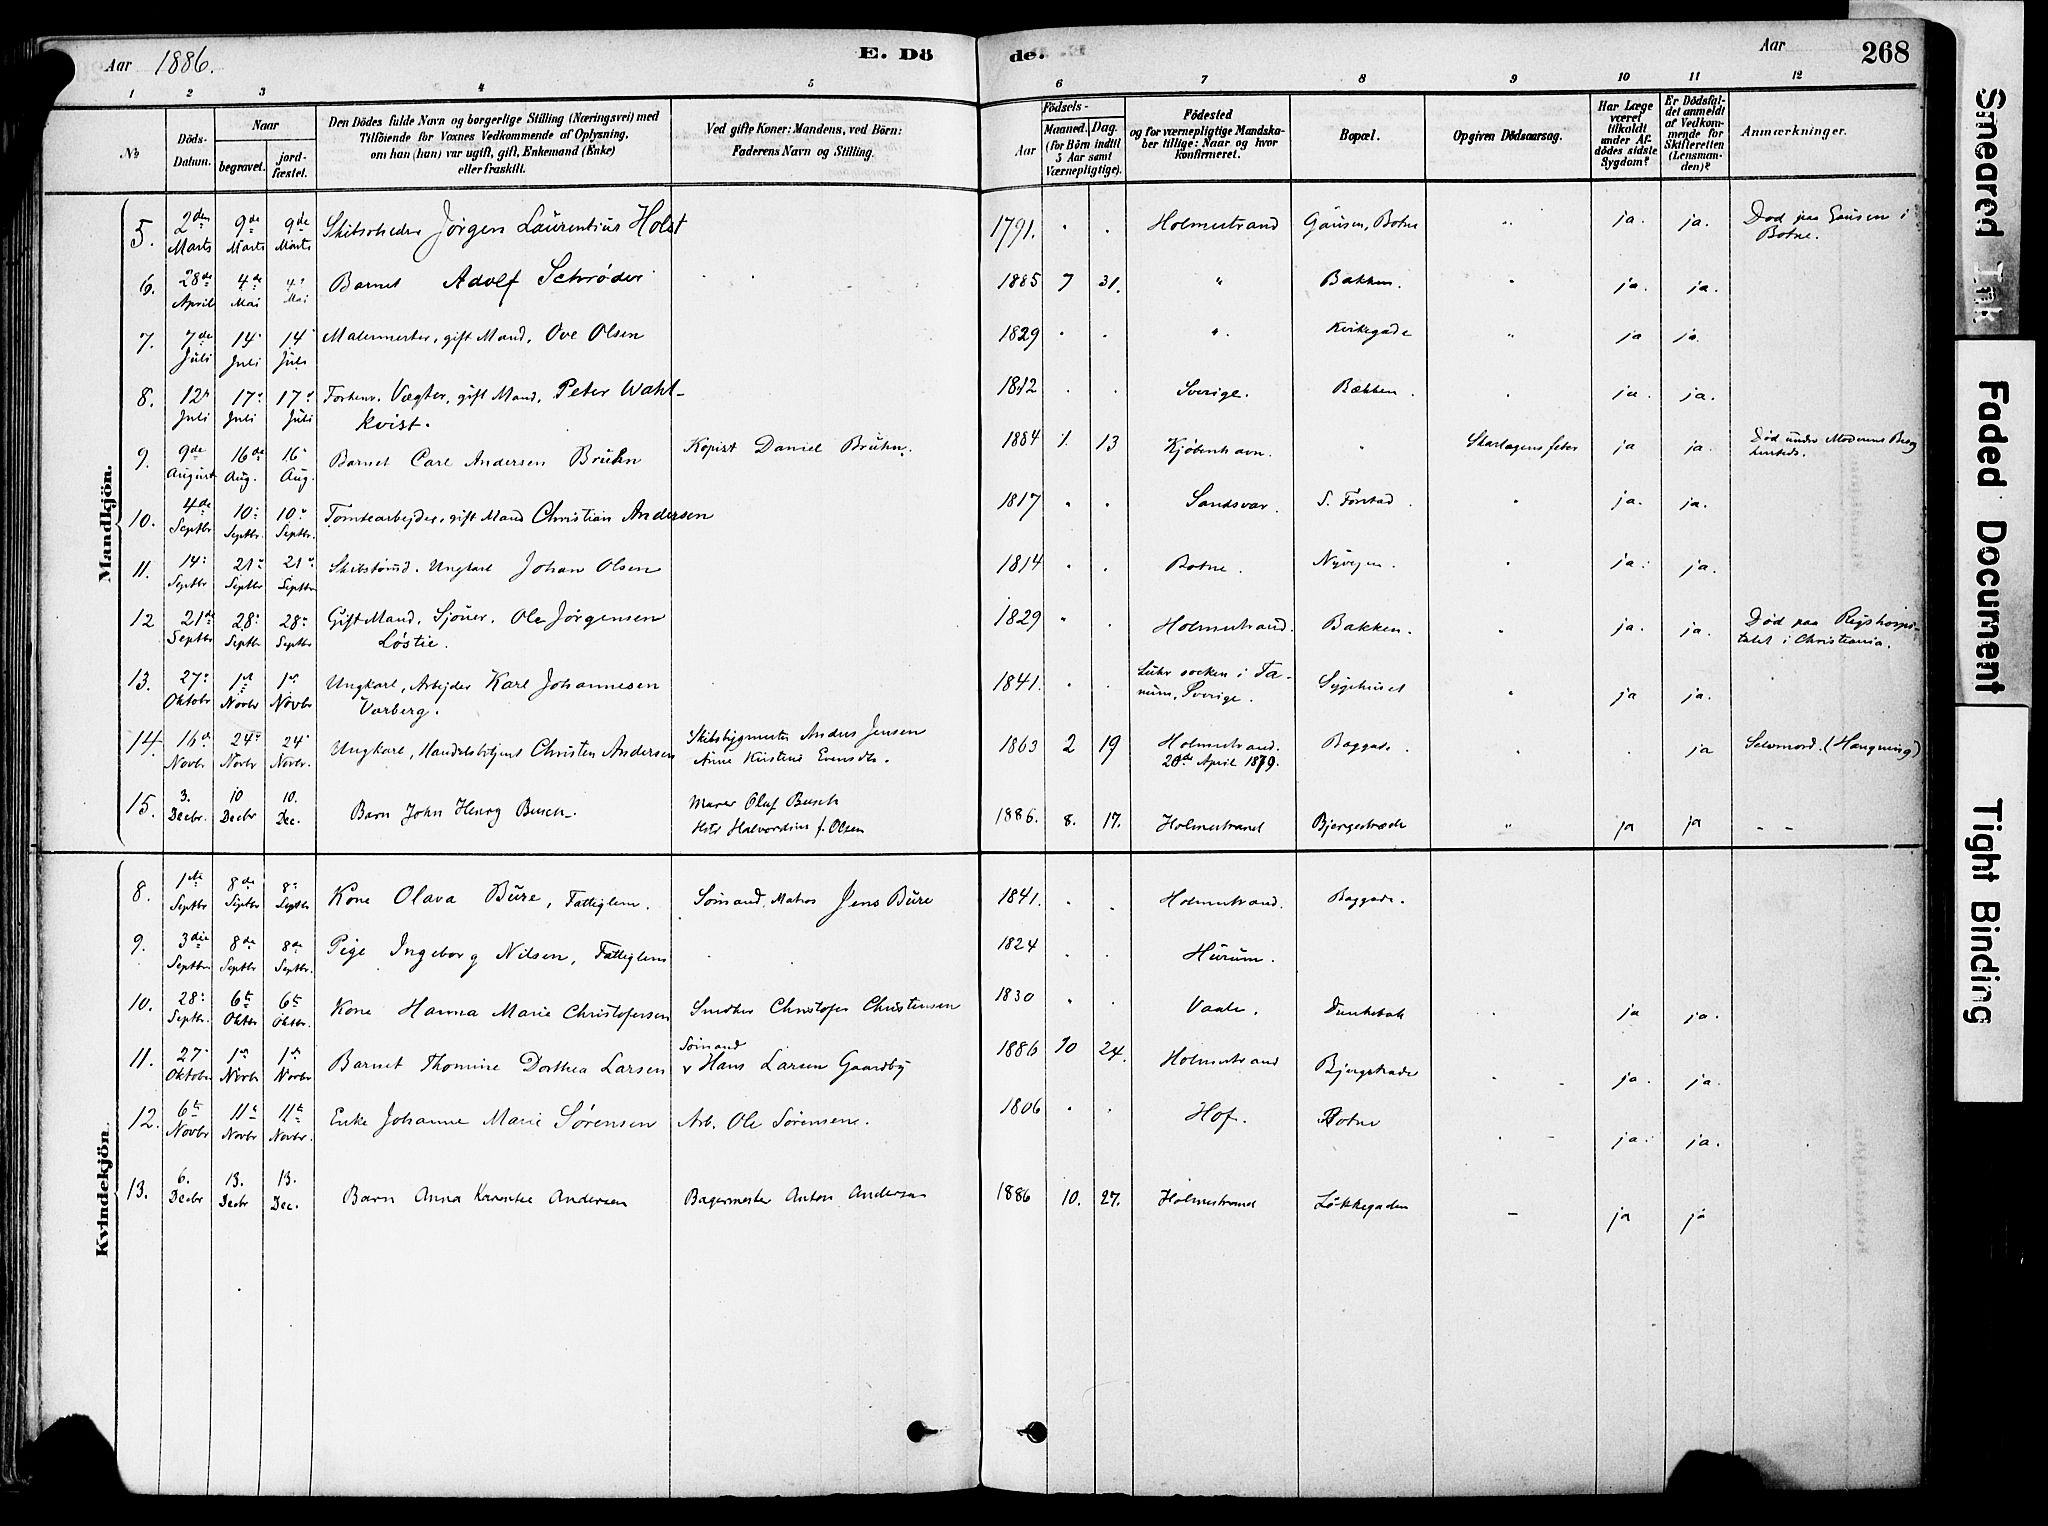 Aar 1886.
E. Döde.
Aar
268
1 2 3 4 5 6 7 8 9 10 11 12
No
Döds-Datum.
Naar
begravet.
jordfæstet.
Den Dödes fulde Navn og borgerlige Stilling (Næringsvei) med
Tilföiende for Voxnes Vedkommende af Oplysning,
om han (hun) var ugift, gift, Enkemand (Enke)
eller fraskilt.
Ved gifte Koner: Mandens, ved Börn:
Faderens Navn og Stilling.
Födsels-
Aar
Maaned. Dag.
(for Börn indtil
5 Aar samt
Værnepligtige).
Födested
og for værnepligtige Mandska-
ber tillige: Naar og hvor
konfirmeret.
Bopæl.
Opgiven Dödsaarsag.
Har Læge
været
tilkaldt
under Af-
dödes sidste
Sygdom?
Er Dödsfal-
det anmeldt
af Vedkom-
mende for
Skifteretten
(Lensman-
den)?
Anmærkninger.
Mandkjön.
5. 2den Marts 9de Marts 9de Marts Skibsreder Jörgen Laurentius Holst 1791. Holmestrand Gausen, Botne " ja. ja. Död paa Gausen i
Botne.
6. 28de April 4de Mai 4 Mai Barnet Adolf Schrøder 1885 7 31. " Bakken. " ja. ja.
7. 7de Juli 14 Juli 14 Juli Malermester, gift Mand, Ove Olsen 1829 " Kirkegade " ja ja
8. 12 Juli 17 Juli 17 Juli Forhenv. Vægter, gift Mand, Peter Wahl-
kvist. 1812 Sverige. Bakken. ja. ja.
9. 9de August 16de Aug. 16 Aug. Barnet Carl Andersen Bruhn Kopist Daniel Bruhn. 1884 1. 13 Kjøbenhavn. " Skarlagensfeber ja ja. Død under Moderens Besøg
10. 4de Septbr 10 Septbr. 10 Septbr. Tomtearbejder, gift Mand Christian Andersen 1817 Sandsvær. " ja. ja.
11. 14 Septbr 21 Septbr 21 Septbr Ungkarl Johan Olsen 1814 Botne. Nyvejen. " ja. ja.
12 21de Septbr 28 Septbr 28 Septbr Gift Mand, Sjøuer, Ole Jørgensen
Løstie. 1829 Holmestrand. Bakken. " ja. ja. Død paa Rigshospi-
talet i Christiania.
13. 27 Oktobr 1ste Novbr 1ste Novbr Ungkarl, Arbejder Karl Johannesen
Varberg. 1841. socken i Ta-
num, Sverige. Sygehuset " ja ja.
14. 16de Novbr 24 Novbr 24 Novbr. Ungkarl, Handelsbetjent Christen Andersen Skibsbygmester Anders Jensen
Anne Kirstine Evensdtr. 1863 2 19 Holmestrand.
20de April 1879. Baggade. " ja Selvmord. (Hængning)
15. 3. Decbr. 10 Decbr 10. Dec. Barn John Henry Busch. Murer Oluf Busch
Halvordine f. Olsen 1886. 8. 17. Holmestrand Bjergestræde " ja ja - -
Kvindekjön.
8. 1ste Septbr 8de Septbr 8 Septbr Kone Olava Bure, Fattiglem. Sømand, Matros Jens Bure 1841. Holmestrand. Baggade.
9. 3die Septbr 8de Septbr 8de Septbr. Pige Ingeborg Nilsen, Fattiglem 1824 Hurum.
10. 28 Septbr. 6te Oktbr 6te Oktbr. Kone Hanna Marie Christofersen Snedker Christofer Christensen 1830 Vaale. Dunkebak ja ja.
11. 27 Oktobr 1ste Novbr 1ste Novbr Barnet Thomine Dorthea Larsen Sømand
Hans Larsen Gaardby 1886 10 24. Holmestrand Bjergstrade ja. ja.
12. 6te Novbr 11te Novbr 11te Novbr. Enke Johanne Marie Sørensen Arb. Ole Sørensene. 1806 Hof. Botne ja. ja.
13. 6. Decbr 13. Decbr 13. Dec. Barn Anna Andersen Bagermester Anton Andersen 1886 10. 27. Holmestrand Løkkegaden - ja ja
Smeared Ink
Faded Document
Tight Binding